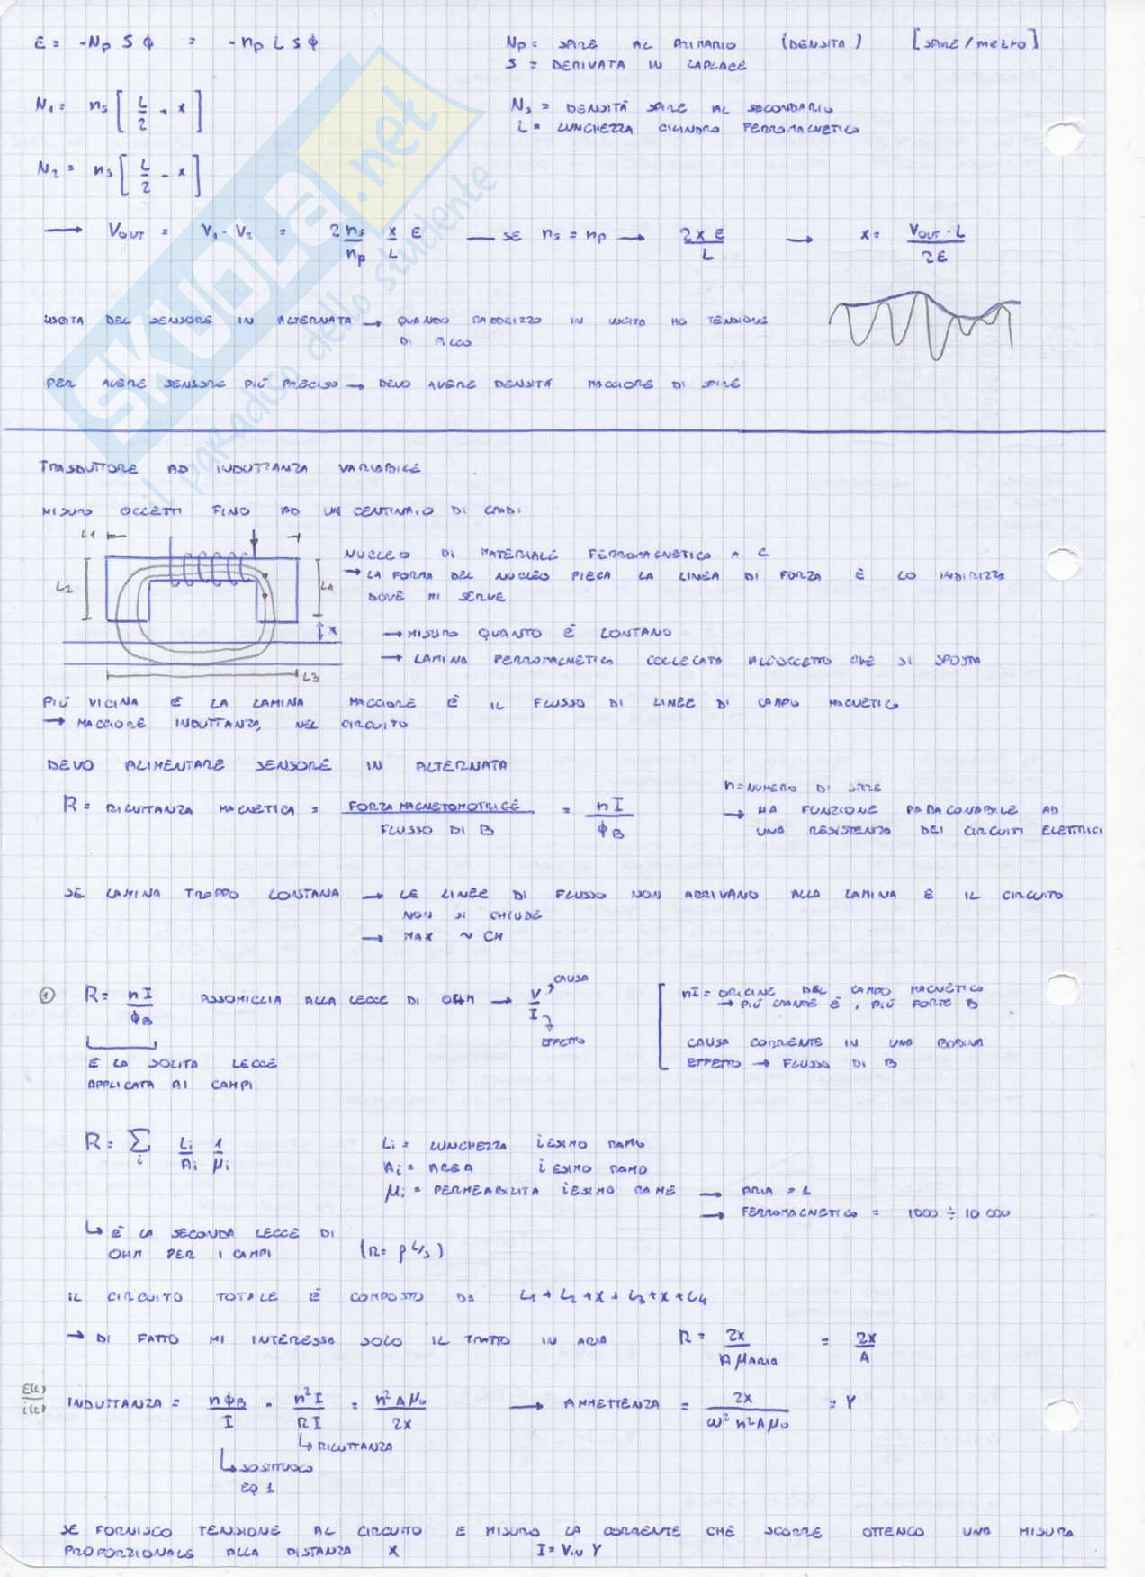 E = -Np S φ = -np L S φ
Np = SPIRE AL PRIMARIO (DENSITÀ) [SPIRE/METRO]
S = DERIVATA IN LAPLACE
N1 = ns [L/2 + x]
Ns = DENSITÀ SPIRE AL SECONDARIO
L = LUNGHEZZA CILINDRO FERROMAGNETICO
N2 = ns [L/2 - x]
→ VOUT = V1 - V2 = 2 ns/np x/L E — SE ns = np → 2xE/L → x = VOUT · L/2E
USCITA DEL SENSORE IN ALTERNATA → QUANDO RADDRIZZO IN USCITA HO TENSIONE
DI PICCO
PER AVERE SENSORE PIÙ PRECISO → DEVO AVERE DENSITÀ MAGGIORE DI SPIRE
TRASDUTTORE AD INDUTTANZA VARIABILE
MISURO OGGETTI FINO AD UN CENTINAIO DI GRADI
L1
L2
L4
x
L3
NUCLEO DI MATERIALE FERROMAGNETICO A C
→ LA FORMA DEL NUCLEO PIEGA LA LINEA DI FORZA E LO INDIRIZZA
DOVE MI SERVE
→ MISURO QUANTO È LONTANO
→ LAMINA FERROMAGNETICA COLLEGATA ALL'OGGETTO CHE SI SPOSTA
PIÙ VICINA È LA LAMINA MAGGIORE È IL FLUSSO DI LINEE DI CAMPO MAGNETICO
→ MAGGIORE INDUTTANZA, NEL CIRCUITO
DEVO ALIMENTARE SENSORE IN ALTERNATA
R = RILUTTANZA MAGNETICA = FORZA MAGNETOMOTRICE/FLUSSO DI B = nI/φB
n = NUMERO DI SPIRE
→ HA FUNZIONE PARAGONABILE AD
UNA RESISTENZA DEI CIRCUITI ELETTRICI
SE LAMINA TROPPO LONTANA → LE LINEE DI FLUSSO NON ARRIVANO ALLA LAMINA E IL CIRCUITO
NON SI CHIUDE
→ MAX ~ CM
① R = nI/φB ASSOMIGLIA ALLA LEGGE DI OHM → V/I
CAUSA
EFFETTO
È LA SOLITA LEGGE
APPLICATA AI CAMPI
nI = ORIGINE DEL CAMPO MAGNETICO
→ PIÙ GRANDE È, PIÙ FORTE B
CAUSA CORRENTE IN UNA BOBINA
EFFETTO → FLUSSO DI B
R = Σi Li/Ai 1/μi
Li = LUNGHEZZA iESIMO RAMO
Ai = AREA iESIMO RAMO
μi = PERMEABILITÀ iESIMO RAMO → ARIA = 1
→ FERROMAGNETICO = 1000 ÷ 10 000
↳ È LA SECONDA LEGGE DI
OHM PER I CAMPI (R = ρ L/S)
IL CIRCUITO TOTALE È COMPOSTO DA L1 + L2 + x + L3 + x + L4
→ DI FATTO MI INTERESSA SOLO IL TRATTO IN ARIA R = 2x/A μARIA = 2x/A
E(t)/i(t) INDUTTANZA = nφB/I = n²I/RI = n²Aμ0/2x → AMMETTENZA = 2x/ω²n²Aμ0 = Y
↳ RILUTTANZA
↳ SOSTITUISCO
EQ 1
SE FORNISCO TENSIONE AL CIRCUITO E MISURO LA CORRENTE CHE SCORRE OTTENGO UNA MISURA
PROPORZIONALE ALLA DISTANZA X I = VIN Y
SKUOLA.net
il paradiso dello studente